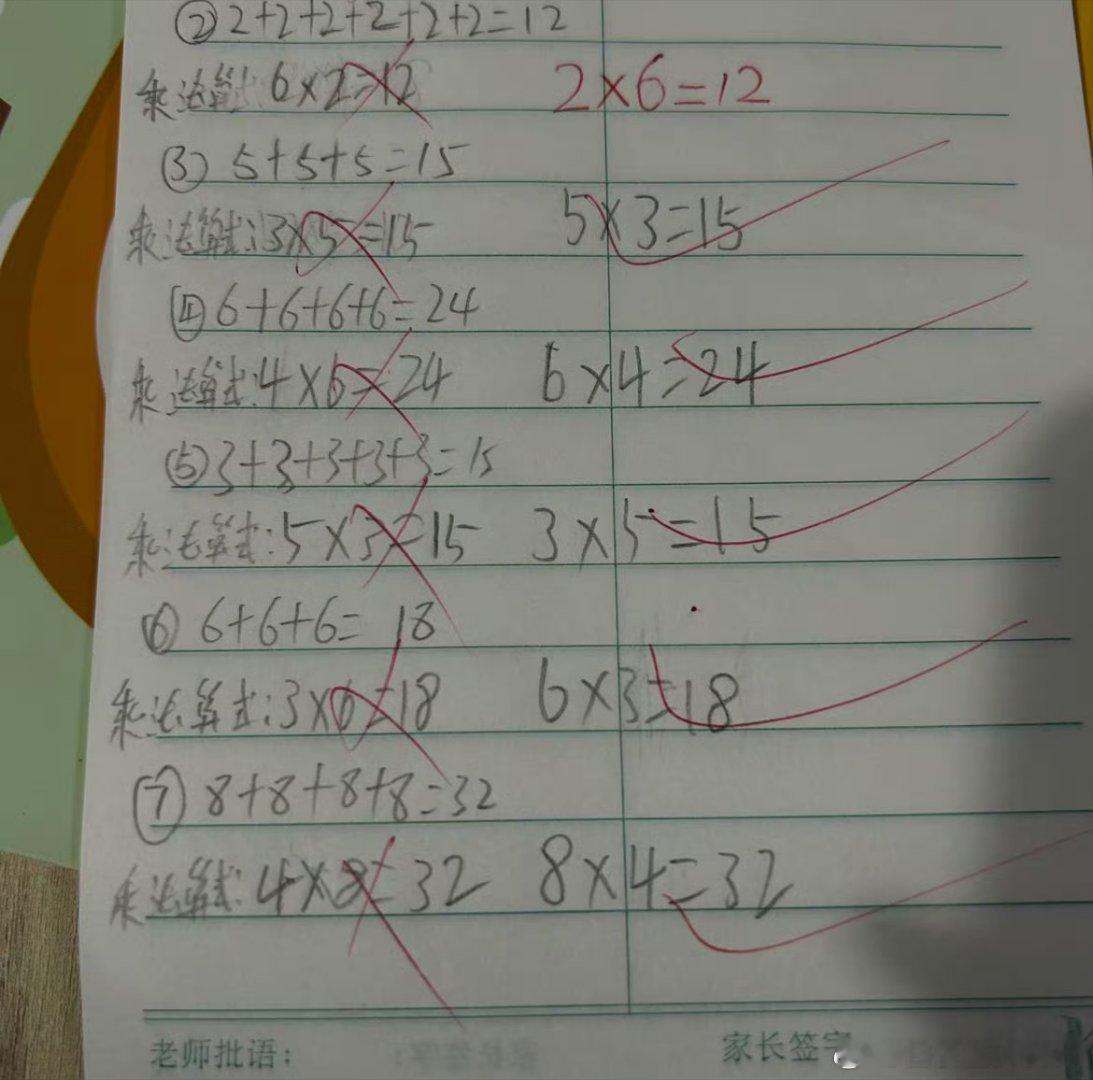 ②2+2+2+2+2+2=12
乘法算: 6×2=12 2×6=12
③ 5+5+5=15
乘法算式:3×5=15 5×3=15
④6+6+6+6=24
乘法算式:4×6=24 6×4=24
⑤3+3+3+3+3=15
乘法算式:5×3=15 3×5=15
⑥ 6+6+6= 18
乘法算式:3×6=18 6×3=18
⑦ 8+8+8+8=32
乘法算式:4×8=32 8×4=32
老师批语: 家长签字